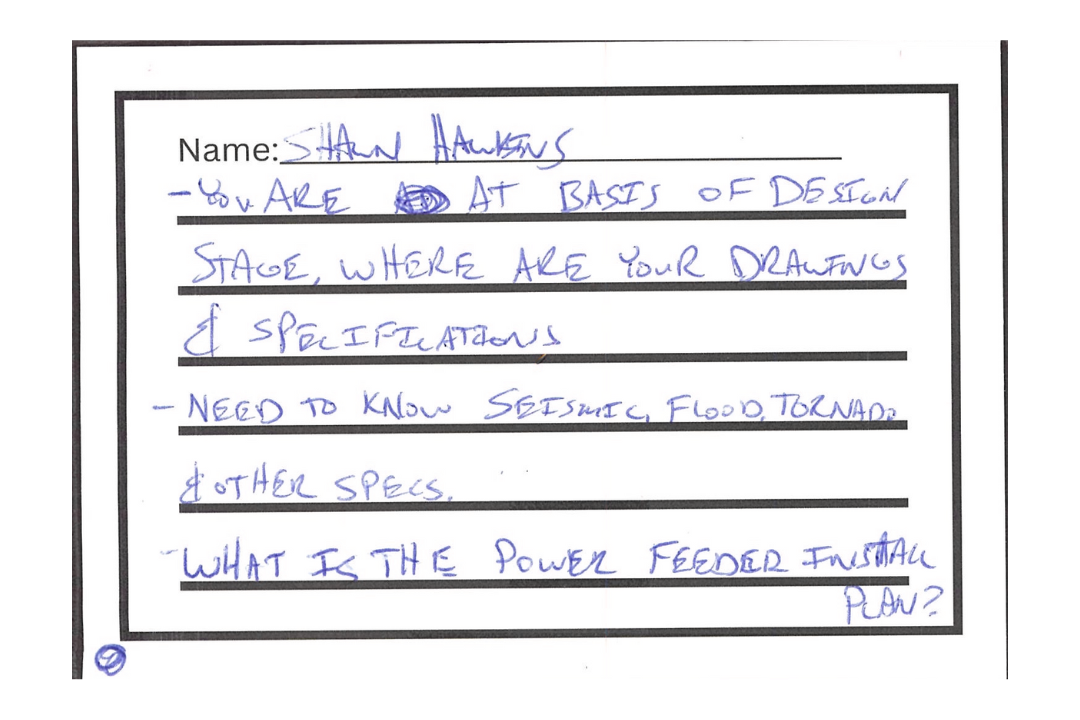 Name: SHAWN HAWKINS
- YOU ARE AT BASIS OF DESIGN
STAGE, WHERE ARE YOUR DRAWINGS
& SPECIFICATIONS
- NEED TO KNOW SEISMIC, FLOOD, TORNADO
& OTHER SPECS.
- WHAT IS THE POWER FEEDER INSTALL
PLAN?